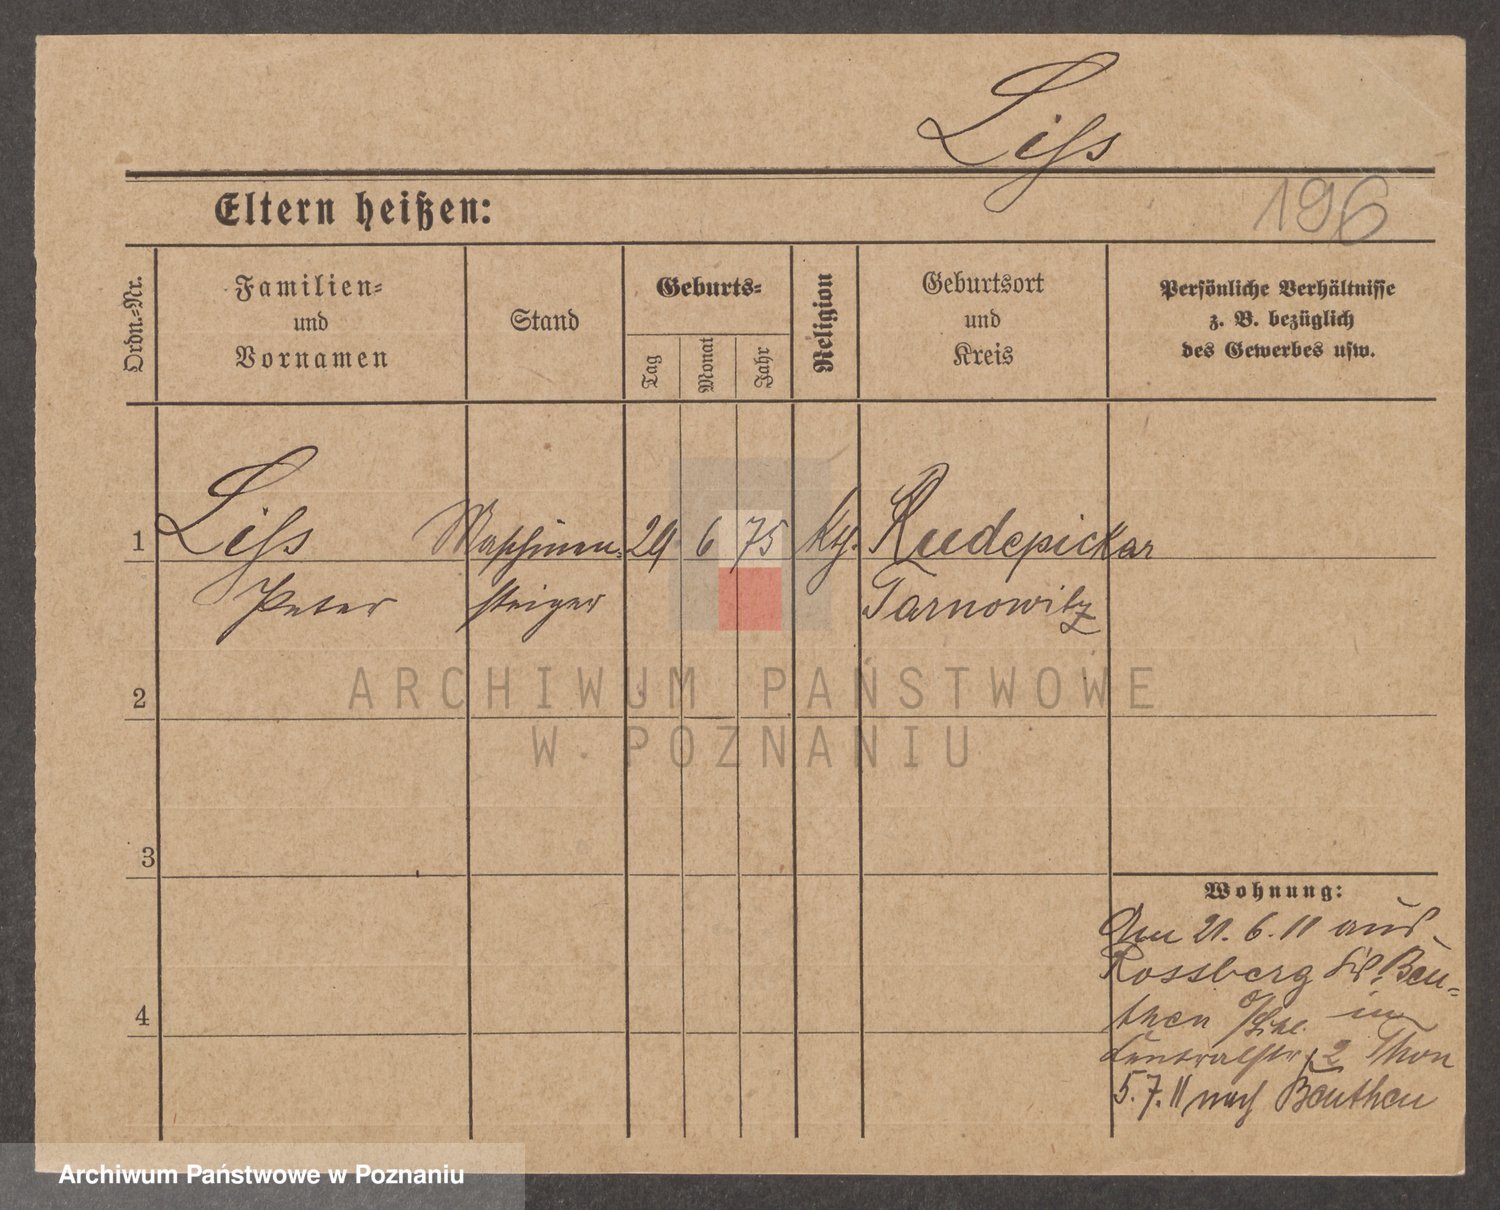 Liss
196
Eltern heißen:
Ordn.-Nr.
Familien-
und
Vornamen
Stand
Geburts-
Tag
Monat
Jahr
Religion
Geburtsort
und
Kreis
Persönliche Verhältnisse
z. B. bezüglich
des Gewerbes usw.
1 Liss Maschinen- 29 6 75 kth. Rudepickar
Peter steiger Tarnowitz
ARCHIWUM PAŃSTWOWE
W POZNANIU
2
3
4
Wohnung:
Am 21. 6. 11 aus
Rossberg Beu-
then O/Schl. in
Centralstr 2 Thon
5. 7. 11 nach Beuthen
Archiwum Państwowe w Poznaniu